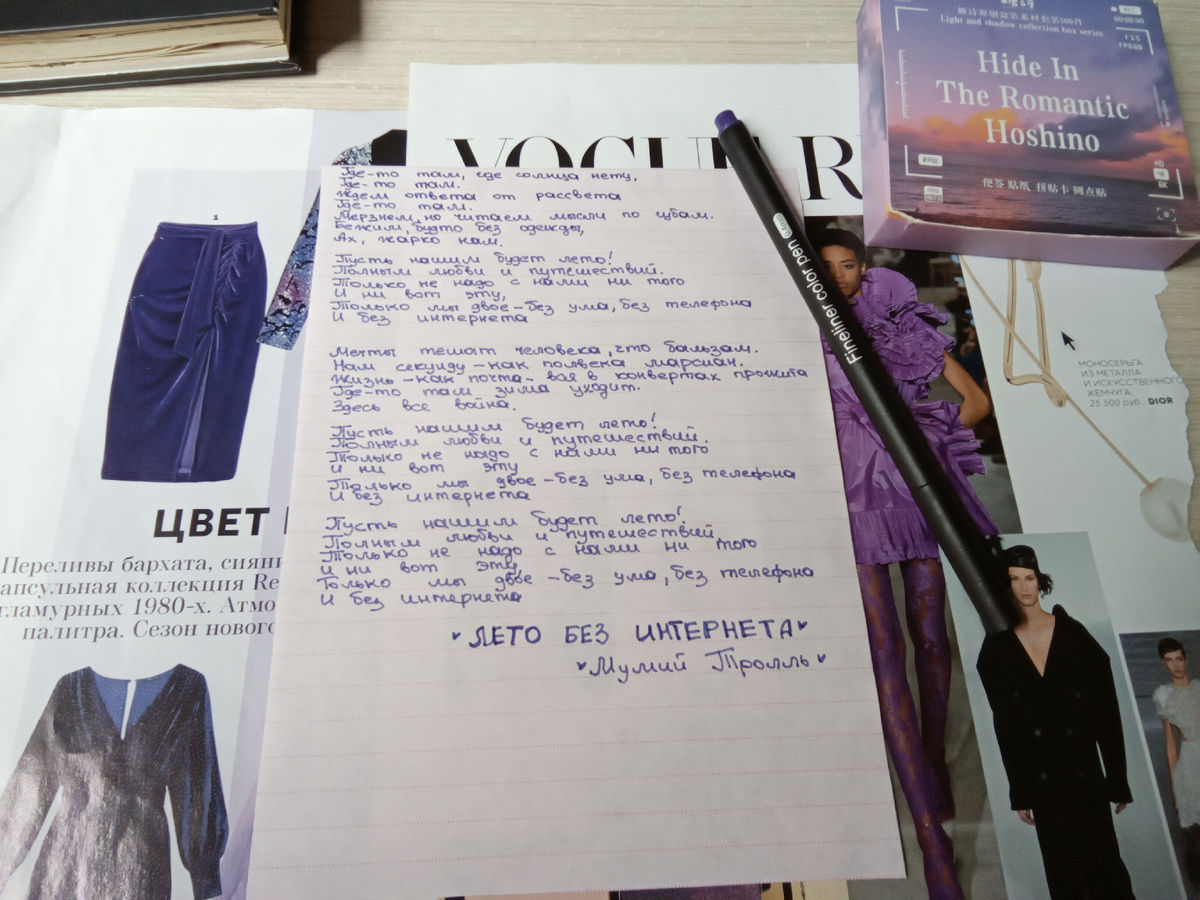 Где-то там, где солнца нету,
Где-то там.
Ждем ответа от рассвета
Где-то там.
Мерзнем, но читаем мысли по губам.
Бежим, будто без одежды,
Ах, жарко нам.
Пусть нашим будет лето!
Полным любви и путешествий.
Только не надо с нами ни того
И ни вот эту,
Только мы двое – без ума, без телефона
И без интернета
Мечты тешат человека, что бальзам.
Нам секунду – как полвека марсиан.
Жизнь – как почта – вся в конвертах прожита
Где-то там зима уходит.
Здесь все война.
Пусть нашим будет лето!
Полным любви и путешествий.
Только не надо с нами ни того
И ни вот эту
Только мы двое – без ума, без телефона
И без интернета
Пусть нашим будет лето!
Полным любви и путешествий
Только не надо с нами ни того
И ни вот эту,
Только мы двое – без ума, без телефона
И без интернета
ЛЕТО БЕЗ ИНТЕРНЕТА
Мумий Тролль
VOGUE
Fineliner color pen 0.4mm
Light and shadow collection box series
00:00:00
F3.5
FPS60
Hide In
The Romantic
Hoshino
RAW
便签 贴纸 拼贴卡 圆点贴
1
ЦВЕТ
Переливы бархата, сияни
апсульная коллекция Re
гламурных 1980-х. Атмо
палитра. Сезон нового
МОНОСЕРЬГА
ИЗ МЕТАЛЛА
И ИСКУССТВЕННОГО
ЖЕМЧУГА,
25 500 руб., DIOR